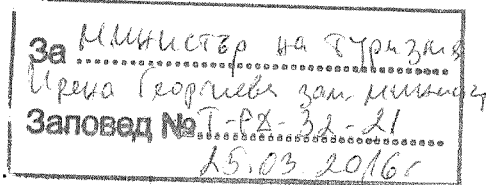 За министър на туризма
Ирена Георгиева зам. министър
Заповед № Т-РД-32-21
25.03.2016г